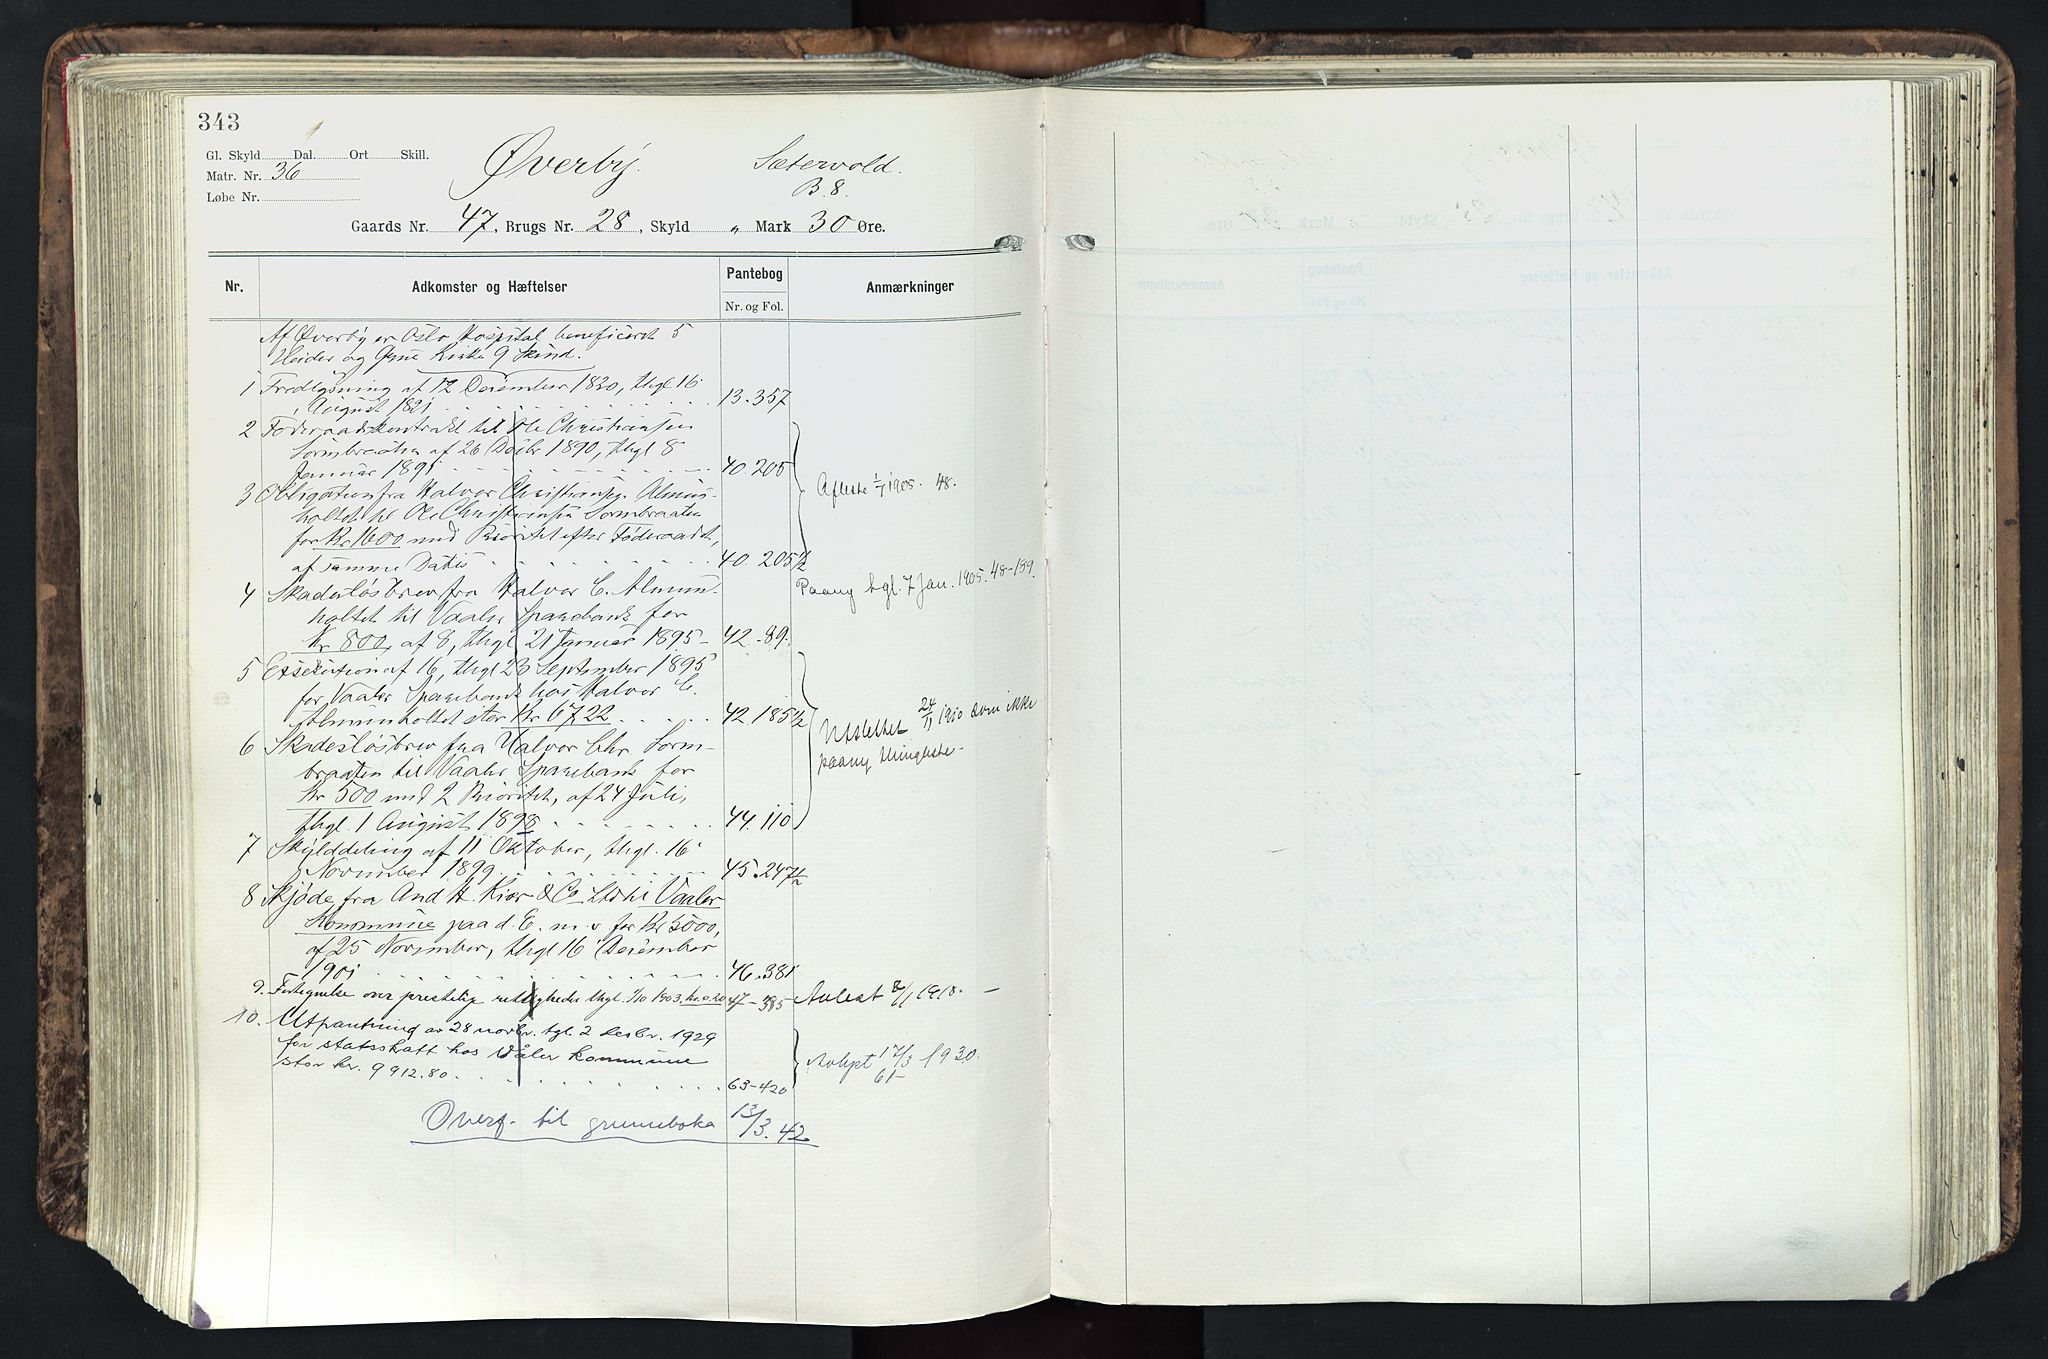 343
Gl. Skyld Dal. Ort Skill.
Matr. Nr. 36
Løbe Nr.
Øverby. Sætervold.
B 8.
Gaards Nr. 47, Brugs Nr. 28, Skyld „ Mark 30 Øre.
Nr. Adkomster og Hæftelser Pantebog Anmærkninger
Nr. og Fol.
Af Øverby er Oslo Hospital beneficeret 5
Huder og Kirke 9 Skind.
1 Fredlysning af 12 December 1820, thgl 16
August 1821 13.357
2 Føderaadskontrakt til Ole Christiansen
Sormbraaten af 26 Decbr 1890, thgl 8
Januar 1891 40.205
3 Obligation fra Halvor Christiansen Almun-
holtet til Ole Christiansen Sormbraaten
for Kr 1600 med Prioritet efter Føderaadet,
af samme Datis 40.205 1/2
Afleste 1/7 1905. 48.
4 Skadesløsbrev fra Halvor C. Almun-
holtet til Vaaler Sparebank for
Kr 800, af 8, thgl 21 Januar 1895 42.89.
Paany tgl. 7 Jan. 1905. 48-139.
5 Exsekution af 16, thgl 23 September 1895
for Vaaler Sparebank hos Halvor C.
Almunholtet stor Kr 67,22 42.185 1/2
6 Skadesløsbrev fra Halvor Chr. Sorm-
braaten til Vaaler Sparebank for
Kr 500 med 2 Prioritet, af 24 Juli,
thgl. 1 August 1898 44.110
Udslettet 24/11 1910 som ikke
paany thinglæste.
7 Skylddeling af 11 Oktober, thgl. 16
November 1899 45.247 1/2
8 Skjøde fra And H. Kiær & Co Ltd til Vaaler
Kommune paa d. E. m. v for Kr 5000,
af 25 November, thgl 16 December
1901 46.381
9. Fortegnelse over prestelige rettigheder thgl. 1/10 1903, 47-385 Avlest 8/11 1918.
10. Utpantning av 28 novbr. tgl. 2 desbr. 1929
for statsskatt hos Våler kommune
stor kr. 9 912.80 63-420
Avlyst 17/3 1930.
61-
Overf. til grunnboka 13/3.42